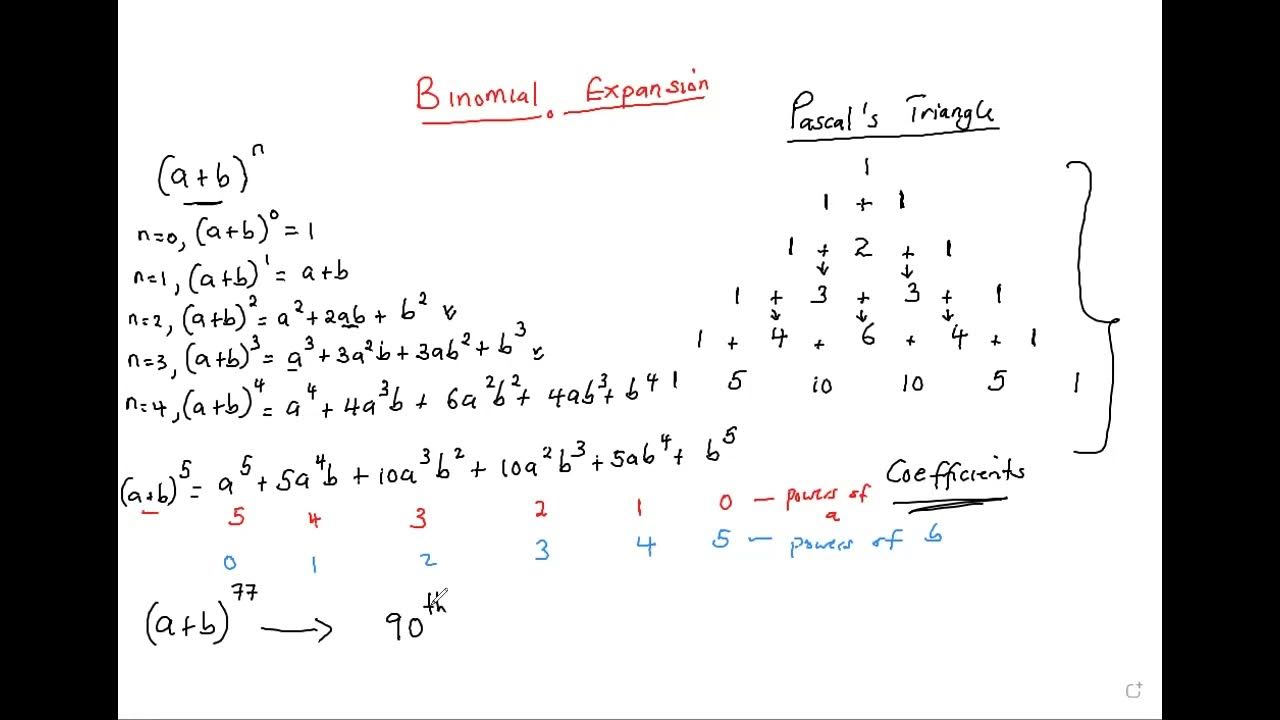 Binomial Expansion
Pascal's Triangle
(a+b)^n
n=0, (a+b)^0 = 1
n=1, (a+b)^1 = a+b
n=2, (a+b)^2 = a^2 + 2ab + b^2
n=3, (a+b)^3 = a^3 + 3a^2b + 3ab^2 + b^3
n=4, (a+b)^4 = a^4 + 4a^3b + 6a^2b^2 + 4ab^3 + b^4
1
1 + 1
1 + 2 + 1
1 + 3 + 3 + 1
1 + 4 + 6 + 4 + 1
1 5 10 10 5 1
Coefficients
(a+b)^5 = a^5 + 5a^4b + 10a^3b^2 + 10a^2b^3 + 5ab^4 + b^5
5 4 3 2 1 0 — powers of a
0 1 2 3 4 5 — powers of b
(a+b)^77 → 90th